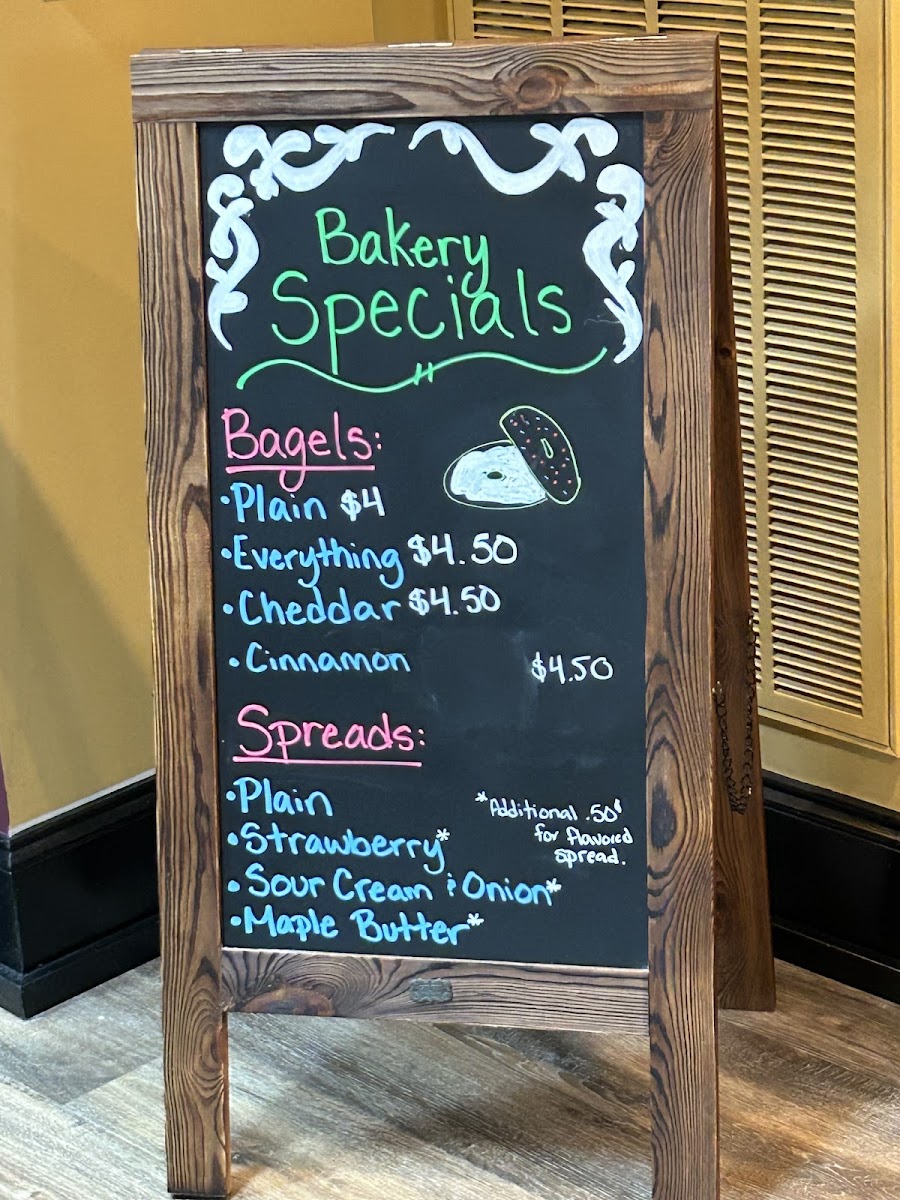 Bakery
Specials
Bagels:
•Plain $4
•Everything $4.50
•Cheddar $4.50
•Cinnamon $4.50
Spreads:
•Plain
•Strawberry*
•Sour Cream & Onion*
•Maple Butter*
*Additional .50¢
for flavored
spread.